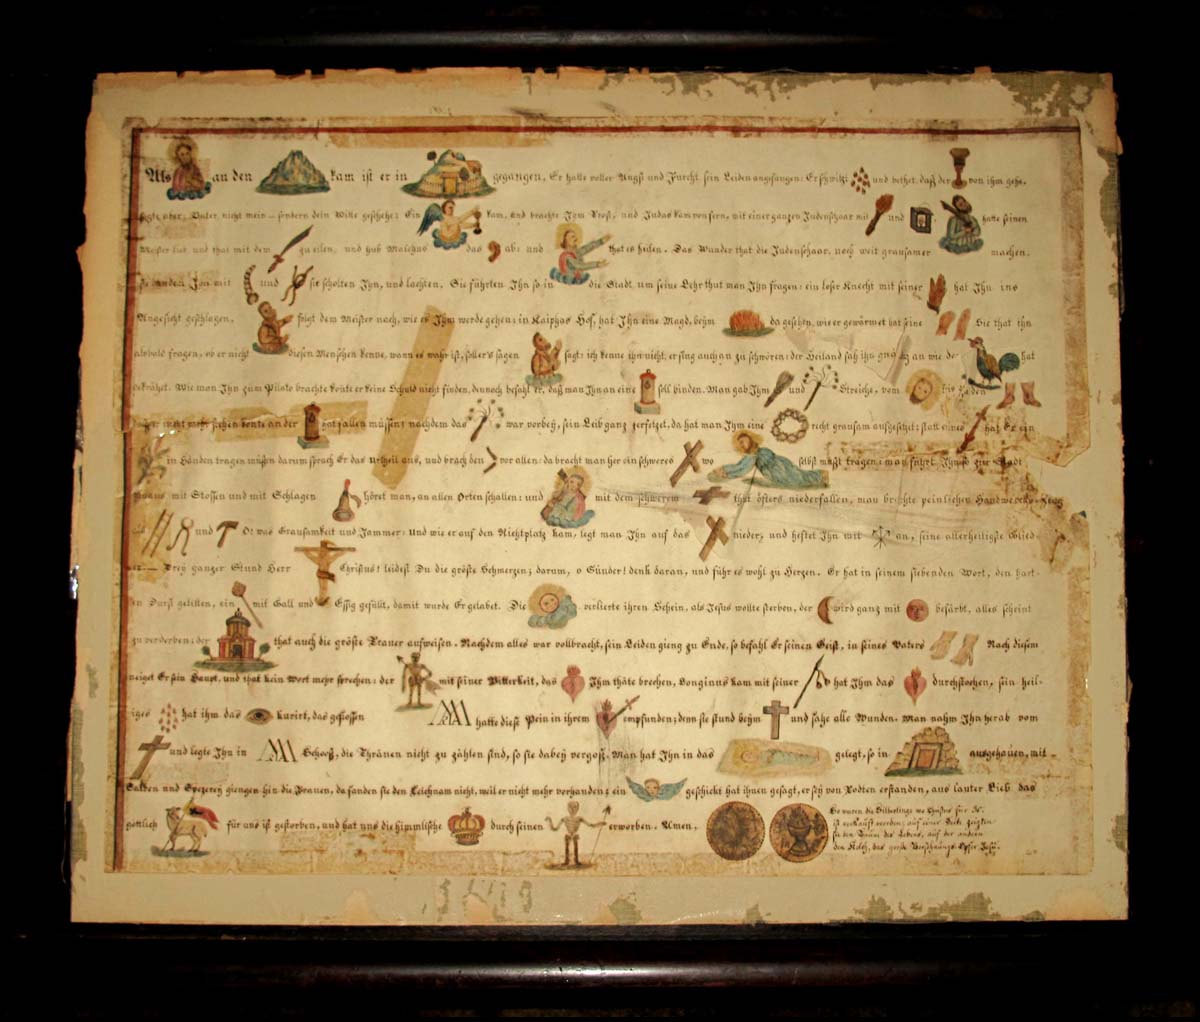 Als an den kam ist er in gegangen, Er hatte voller Angst und Furcht sein Leiden angefangen: Er schwitzt und bethet, daß der von ihm gehe,
sagte aber, Vater, nicht mein – sondern dein Wille geschehe; Ein kam, und brachte Ihm Trost, und Judas kam von fern, mit einer ganzen Judenschaar mit und hatte seinen
Meister lieb und that mit dem zu eilen, und hub Malchus das ab; und that es heilen. Das Wunder that die Judenschaar, noch weit grausamer machen.
Sie banden Ihn mit und sie scholten Ihn, und lachten, Sie führten Ihn so in die Stadt um seine Lehr thut man Ihn fragen; ein loser Knecht mit seiner hat Ihn ins
Angesicht geschlagen. folgt dem Meister nach, wie es Ihm werde gehen; in Kaiphas Hof, hat Ihn eine Magd, beÿm da gesehen, wie er gewärmet hat seine Sie that ihn
alsbald fragen, ob er nicht diesen Menschen kenne, wann es wahr ist, soller's sagen sagt: ich kenne ihn nicht, er fing auch an zu schwören; der Heiland sah ihn an wie de hat
gekrähet. Wie man Ihn zum Pilato brachte konte er keine Schuld nicht finden, dennoch befahl er, daß man Ihn an eine soll binden. Man gab Ihm und Streiche, vom bis zu den
daß er nicht mehr stehen konte an der hat fallen müssen; nachdem das war vorbeÿ, sein Leib ganz zerfetzet, da hat man Ihm eine recht grausam aufgesetzet; statt eines hat Er ein
in Händen tragen müssen darum sprach Er das Urtheil aus, und brach den vor allen; da bracht man her ein schweres wo selbst mußt tragen; man führt Ihn zur Stadt
hinaus mit Stossen und mit Schlagen höret man, an allen Orten schallen; und mit dem schwerem that öfters niederfallen, man brachte peinlichen Handwercks-Zeug
und O! was Grausamkeit und Jammer; Und wie er auf den Richtplatz kam, legt man Ihn auf das nieder, und heftet Ihn mit an, seine allerheiligste Glied-
er – Dreÿ ganzer Stund Herr Christus! leidest Du die gröste Schmerzen; darum, o Sünder! denk daran, und führ es wohl zu Herzen. Er hat in seinem siebenden Wort, den hart-
en Durst gelitten, ein mit Gall und Essig gefüllt, damit wurde Er gelabet. Die verlierte ihren Schein, als Jesus wollte sterben, der wird ganz mit befärbt, alles scheint
zu verderben; der that auch die gröste Trauer aufweisen. Nachdem alles war vollbracht, sein Leiden gieng zu Ende, so befahl Er seinen Geist, in seines Vaters Nach diesem
neiget Er sein Haupt, und that kein Wort mehr sprechen; der mit seiner Bitterkeit, das Ihm thäte brechen, Longinus kam mit seiner hat Ihm das durchstochen, sein heil-
iges hat ihm das kurirt, das geflossen hatte diese Pein in ihrem empfunden; denn sie stund beÿm und sahe alle Wunden. Man nahm Ihn herab vom
und legte Ihn in Schooß, die Thränen nicht zu zählen sind, so sie dabeÿ vergoß. Man hat Ihn in das gelegt, so in ausgehauen, mit –
Salben und Spezereÿ giengen hin die Frauen, da fanden sie den Leichnam nicht, weil er nicht mehr vorhanden; ein geschickt hat ihnen gesagt, er seÿ von Todten erstanden, aus lauter Lieb das
göttlich für uns ist gestorben, und hat uns die himmlische durch seinen erworben. Amen.
So waren die Silberlinge wo Christus für 30.
ist verkauft worden; auf einer Seite zeigten
sie den Baum des Lebens, auf der andern
den Kelch, das große Versöhnungs Opfer Jesu.